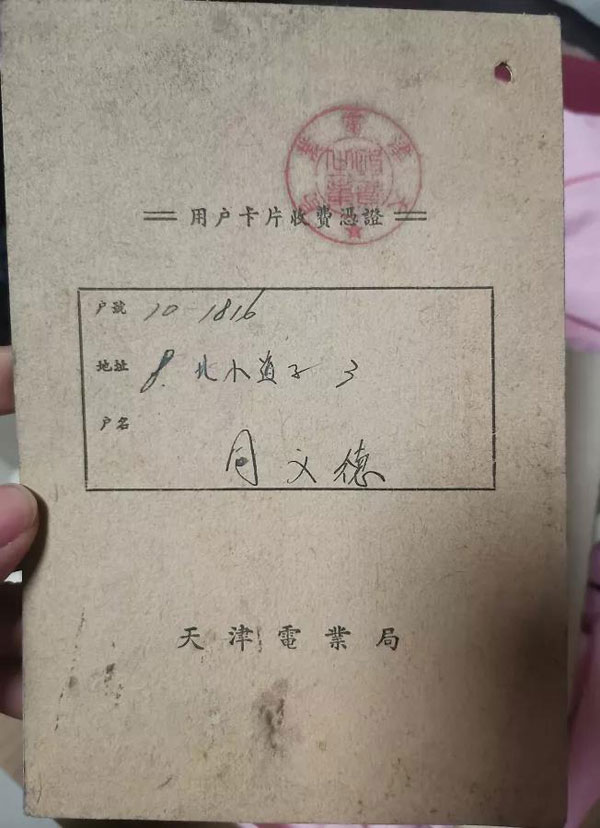 用户卡片收費憑證
户號 10-1816
地址 8. 北小道子 3
户名
周文德
天津電業局